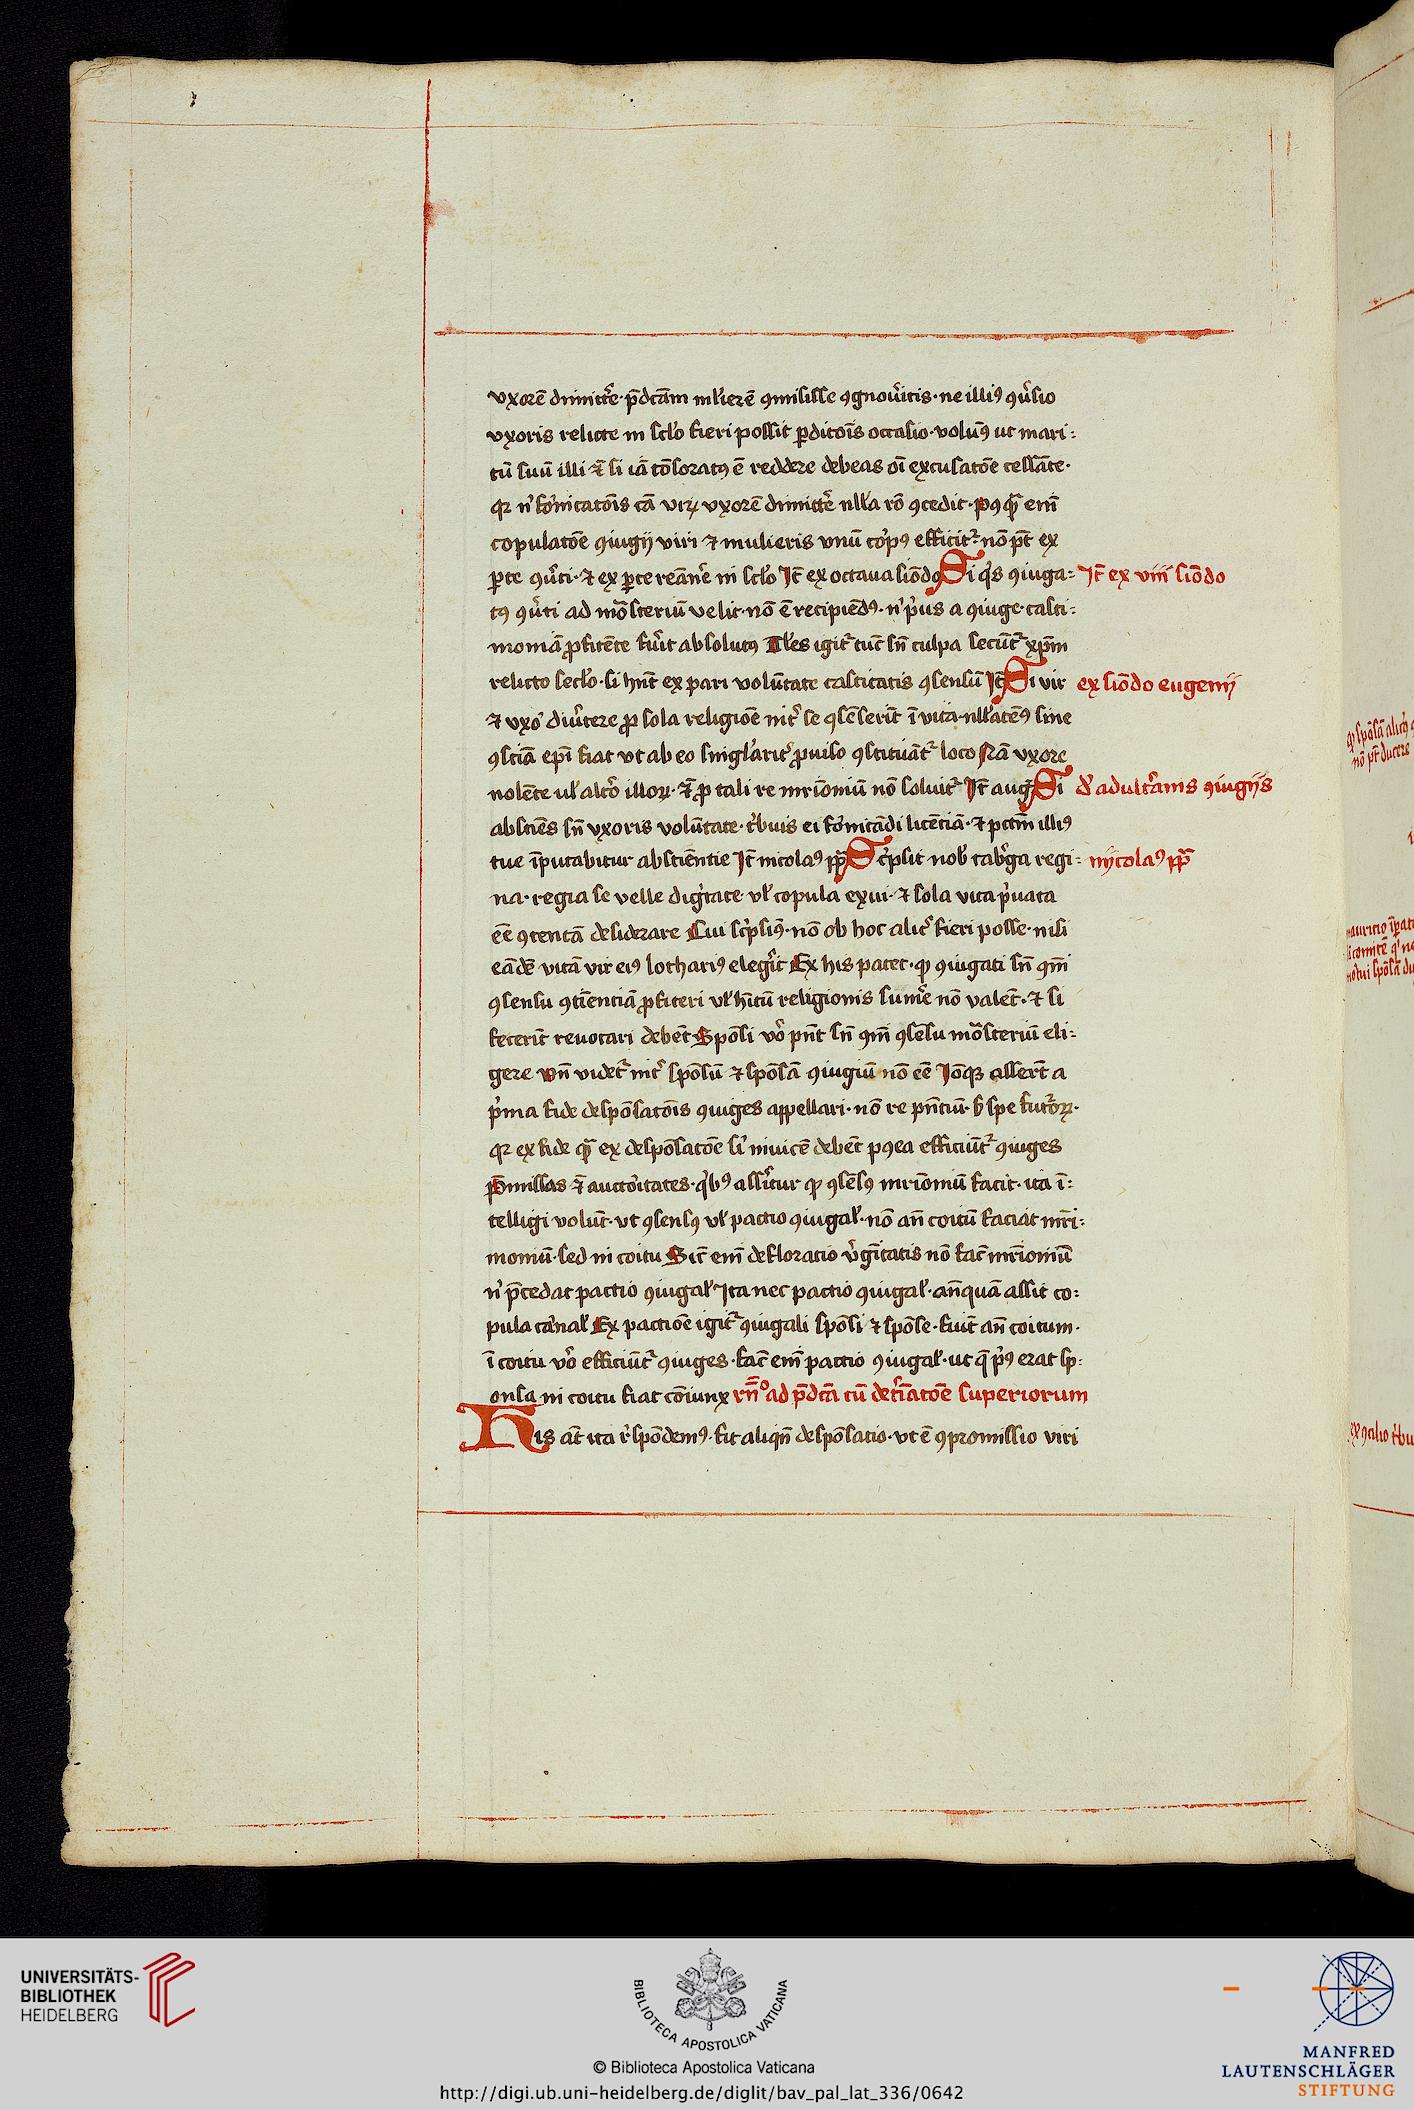 vxorē dimitte᷑· p̄dc̄am ml̓ierē ꝯmisisse ꝯgnou̓itis· ne illiꝰ ꝯu̓sio
vxoris relicte in scl̓o fieri possit p̱ditōis occasio· volum̄ꝰ ut mari:
tū suū illi ⁊̄ si iā tōsoratꝰ ē reddere debeas oī excusatōe cessāte·
qꝛ n̓ fo̓nicatōis cā virꝫ vxorē dimitte᷑ nll̓a rō ꝯcedit· pꝯq̄ȝ em̄
copulatōe ꝯiugij viri ⁊ mulieris vnū co̓pꝰ efficit᷑· nō pt̄ ex
ꝑte ꝯu̓ti· ⁊ ex ꝑte reāne᷑ in scl̓o It̄ ex octaua siōdo Si q̓s ꝯiuga:
tꝰ ꝯu̓ti ad mo᷑steriū velit· nō ē recipiēdꝰ· n̓ p̓us a ꝯiuge casti:
moniā ꝓfitēte fu̓it absolutꝰ Tl̓es igit᷑ tūc sn̄ culpa secūt᷑ xp̄m
relicto secl̓o· si hn̄t ex pari volūtate castitatis ꝯsensū It̄ Si vir
⁊ vxo᷑ diu̓tere ꝓ sola religiōe int᷑ se ꝯsēserīt ī vita· nll̓atēꝰ sine
ꝯsciā ep̄i fiat vt ab eo singl̓arit᷑ ꝓuiso ꝯstituāt᷑ loco Nā vxore
nolēte ul̓ alto᷑ illoꝝ· ⁊̄ ꝓ tali re mr̄iōniū nō soluit᷑ It̄ augꝰ Si
abstiēs sn̄ vxoris volūtate· t᷑buis ei fo̓nicādi licētiā· ⁊ pctm̄ illiꝰ
tue īputabitur abstiēntie It̄ nicolaꝰ pp̄ Sc᷑psit nob̓ tab᷑ga regi:
na· regia se velle dig᷑tate· vl̓ copula exui· ⁊ sola vita p᷑uata
ēē ꝯtentā desiderare Cui sc᷑psimꝰ· nō ob hoc alit᷑ fieri posse· nisi
eādē vitā vir eiꝰ lothariꝰ eleg᷑it Ex his patet· ꝙ ꝯiugati sn̄ ꝯm̄i
ꝯsensu ꝯtīentiā ꝓfiteri ul̓ hītū religionis sume᷑ nō valēt· ⁊ si
fecerīt reuocari debēt Spōsi vō pn̄t sn̄ ꝯm̄ ꝯsēsu mo᷑steriū eli:
gere vn̄ videt᷑ int᷑ spōsū ⁊ spōsā ꝯiugiū nō ēē Iōqꝫ asserūt a
p᷑ma fide despōsatōis ꝯiuges appellari· nō re pn̄tiū· s̓ spe futo᷑ꝝ·
qꝛ ex fide q̄ȝ ex despōsatōe si᷑ inuicē debēt pꝯea efficiūt᷑ ꝯiuges
P̄missas ⁊̄ aucto̓itates· q̓bꝰ asse᷑itur ꝙ ꝯsēsꝰ mr̄iōniū facit· ita ī:
telligi volūt· vt ꝯsensꝰ ul̓ pactio ꝯiugal̓· nō an̄ coitū faciāt mr̄i:
moniū· sed in coitu Sic̄ em̄ defloratio v̓gīitatis nō fac̄ mr̄iōniū
n̓ p̄cedat pactio ꝯiugal̓ Ita nec pactio ꝯiugal̓· an̄quā assit co:
pula ca᷑nal̓ Ex pactiōe igit᷑ ꝯiugali spōsi ⁊ spōse· fuīt an̄ coitum·
ī coitu vō efficiūt᷑ ꝯiuges· fac̄ em̄ pactio ꝯiugal̓· ut q̄ p᷑ꝰ erat sp:
onsa in coitu fiat cōiunx rn̄º ad p̄dc̄a cū det᷑īatōe superiorum
His at̄ ita r᷑spōdemꝰ· fit aliqn̄ despōsatio· vt ē ꝯpromissio viri
It̄ ex viii siōdo
ex siōdo eugenij
d̓ adult᷑anis ꝯiugijs
nycolaꝰ pp̄
UNIVERSITÄTS-
BIBLIOTHEK
HEIDELBERG
BIBLIOTECA APOSTOLICA VATICANA
© Biblioteca Apostolica Vaticana
http://digi.ub.uni-heidelberg.de/diglit/bav_pal_lat_336/0642
MANFRED
LAUTENSCHLÄGER
STIFTUNG